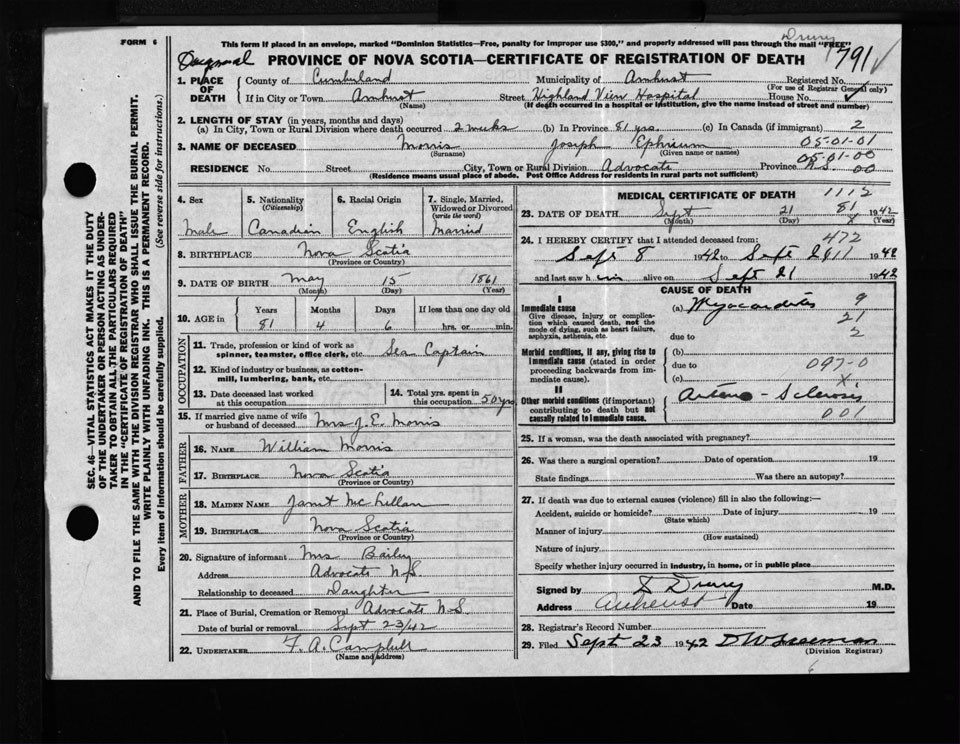 FORM 6
This form if placed in an envelope, marked "Dominion Statistics—Free, penalty for improper use $300," and properly addressed will pass through the mail "FREE"
Drury
PROVINCE OF NOVA SCOTIA—CERTIFICATE OF REGISTRATION OF DEATH
791
1. PLACE OF DEATH
County of Cumberland Municipality of Amherst Registered No.
(For use of Registrar General only)
If in City or Town Amherst Street Highland View Hospital House No.
(Name) (If death occurred in a hospital or institution, give the name instead of street and number)
2. LENGTH OF STAY (in years, months and days)
(a) In City, Town or Rural Division where death occurred 2 weeks (b) In Province 81 yrs. (c) In Canada (if immigrant) 2
05-01-01
3. NAME OF DECEASED Morris Joseph Ephrium
(Surname) (Given name or names)
05-01-00
RESIDENCE No. Street City, Town or Rural Division Advocate Province N.S. 00
(Residence means usual place of abode. Post Office Address for residents in rural parts not sufficient)
4. Sex Male
5. Nationality (Citizenship) Canadian
6. Racial Origin English
7. Single, Married, Widowed or Divorced (write the word) Married
8. BIRTHPLACE Nova Scotia
(Province or Country)
9. DATE OF BIRTH May 15 1861
(Month) (Day) (Year)
10. AGE in Years Months Days If less than one day old
81 4 6 hrs. or min.
OCCUPATION
11. Trade, profession or kind of work as spinner, teamster, office clerk, etc. Sea Captain
12. Kind of industry or business, as cotton-mill, lumbering, bank, etc.
13. Date deceased last worked at this occupation
14. Total yrs. spent in this occupation 50 yrs
15. If married give name of wife or husband of deceased Mrs J. E. Morris
FATHER
16. NAME William Morris
17. BIRTHPLACE Nova Scotia
(Province or Country)
MOTHER
18. MAIDEN NAME Janet McLellan
19. BIRTHPLACE Nova Scotia
(Province or Country)
20. Signature of informant Mrs Bailey
Address Advocate N.S.
Relationship to deceased Daughter
21. Place of Burial, Cremation or Removal Advocate N.S.
Date of burial or removal Sept 23/42
22. UNDERTAKER F. A. Campbell
(Name and address)
MEDICAL CERTIFICATE OF DEATH 1112
81
23. DATE OF DEATH Sept 21 X 1942
(Month) (Day) (Year)
24. I HEREBY CERTIFY that I attended deceased from: 472
Sept 8 1942 to Sept 21 1942
and last saw h im alive on Sept 21 1942
CAUSE OF DEATH
I
Immediate cause
Give disease, injury or complication which caused death, not the mode of dying, such as heart failure, asphyxia, asthenia, etc.
(a) Myocarditis 9
21
due to 2
Morbid conditions, if any, giving rise to immediate cause (stated in order proceeding backwards from immediate cause).
(b)
due to 097-0
(c) X
II
Other morbid conditions (if important) contributing to death but not causally related to immediate cause.
Arterio-Sclerosis
001
25. If a woman, was the death associated with pregnancy?
26. Was there a surgical operation? Date of operation 19
State findings Was there an autopsy?
27. If death was due to external causes (violence) fill in also the following:—
Accident, suicide or homicide? Date of injury 19
(State which)
Manner of injury
(How sustained)
Nature of injury
Specify whether injury occurred in industry, in home, or in public place
Signed by Drury M.D.
Address Amherst Date 19
28. Registrar's Record Number
29. Filed Sept 23 1942 D W Freeman
(Division Registrar)
SEC. 46—VITAL STATISTICS ACT MAKES IT THE DUTY
OF THE UNDERTAKER OR PERSON ACTING AS UNDERTAKER TO OBTAIN ALL THE PARTICULARS REQUIRED
IN THE "CERTIFICATE OF REGISTRATION OF DEATH"
AND TO FILE THE SAME WITH THE DIVISION REGISTRAR WHO SHALL ISSUE THE BURIAL PERMIT.
WRITE PLAINLY WITH UNFADING INK. THIS IS A PERMANENT RECORD.
Every item of information should be carefully supplied. (See reverse side for instructions.)